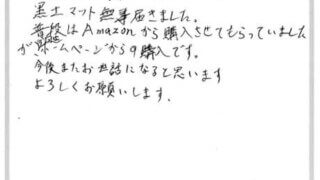 黒土マット無事届きました。
普段はAmazonから購入させてもらっていました
が、ホームページからの購入です。
今後またお世話になると思います
よろしくお願いします.